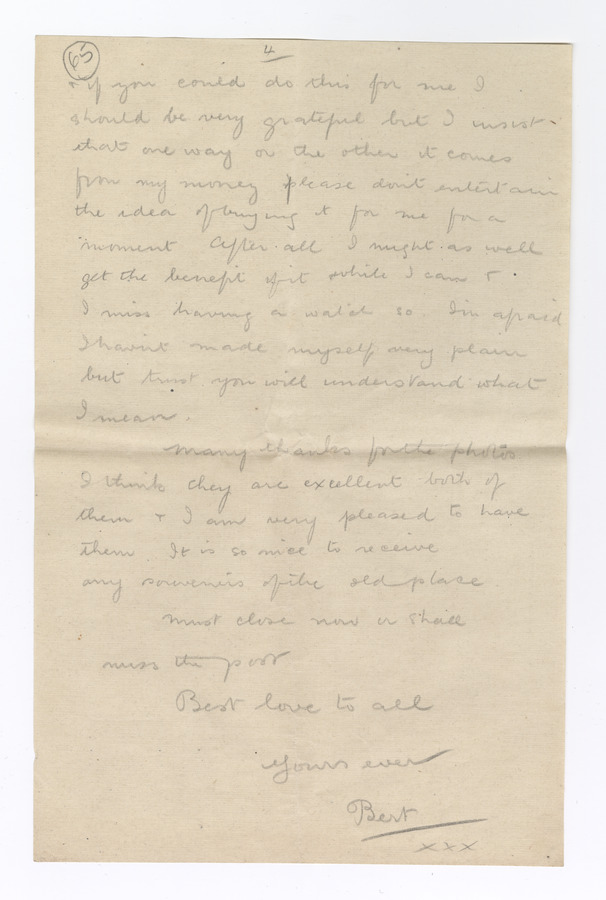 65
4
+ if you could do this for me I
should be very grateful but I insist
that one way or the other it comes
from my money please don't entertain
the idea of buying it for me for a
moment After all I might as well
get the benefit of it while I can &
I miss having a watch so. I'm afraid
I hav'nt made myself very plain
but trust you will understand what
I mean.
Many thanks for the photos
I think they are excellent both of
them + I am very pleased to have
them. It is so nice to receive
any souvenirs of the old place.
Must close now or shall
miss the post
Best love to all
Yours ever
Bert
xxx